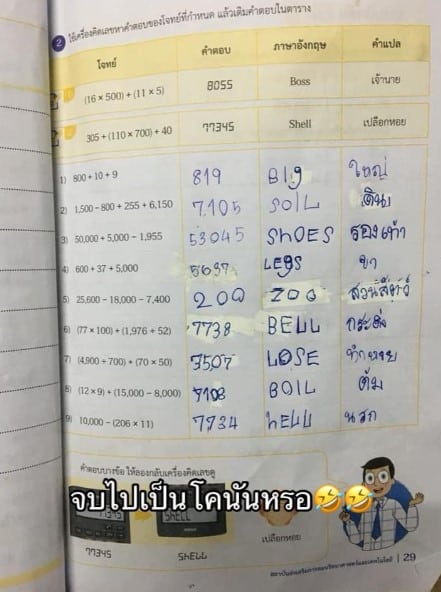 2 ใช้เครื่องคิดเลขหาคำตอบของโจทย์ที่กำหนด แล้วเติมคำตอบในตาราง
โจทย์ คำตอบ ภาษาอังกฤษ คำแปล
(16 × 500) + (11 × 5) BOSS Boss เจ้านาย
305 + (110 × 700) + 40 77345 Shell เปลือกหอย
1) 800 + 10 + 9 819 BIg ใหญ่
2) 1,500 - 800 + 255 + 6,150 7,105 SOIL ดิน
3) 50,000 + 5,000 - 1,955 53045 ShOES รองเท้า
4) 600 + 37 + 5,000 5637 LEgS ขา
5) 25,600 - 18,000 - 7,400 200 ZOO สวนสัตว์
6) (77 × 100) + (1,976 ÷ 52) 7738 BELL กระดิ่ง
7) (4,900 ÷ 700) + (70 × 50) 3507 LOSE ทำหาย
8) (12 × 9) + (15,000 - 8,000) 7108 BOIL ต้ม
9) 10,000 - (206 × 11) 7734 hELL นรก
คำตอบบางข้อ ให้ลองกลับเครื่องคิดเลขดู
จบไปเป็นโคนันหรอ🤣🤣
77345 ShELL เปลือกหอย
สถาบันส่งเสริมการสอนวิทยาศาสตร์และเทคโนโลยี | 29